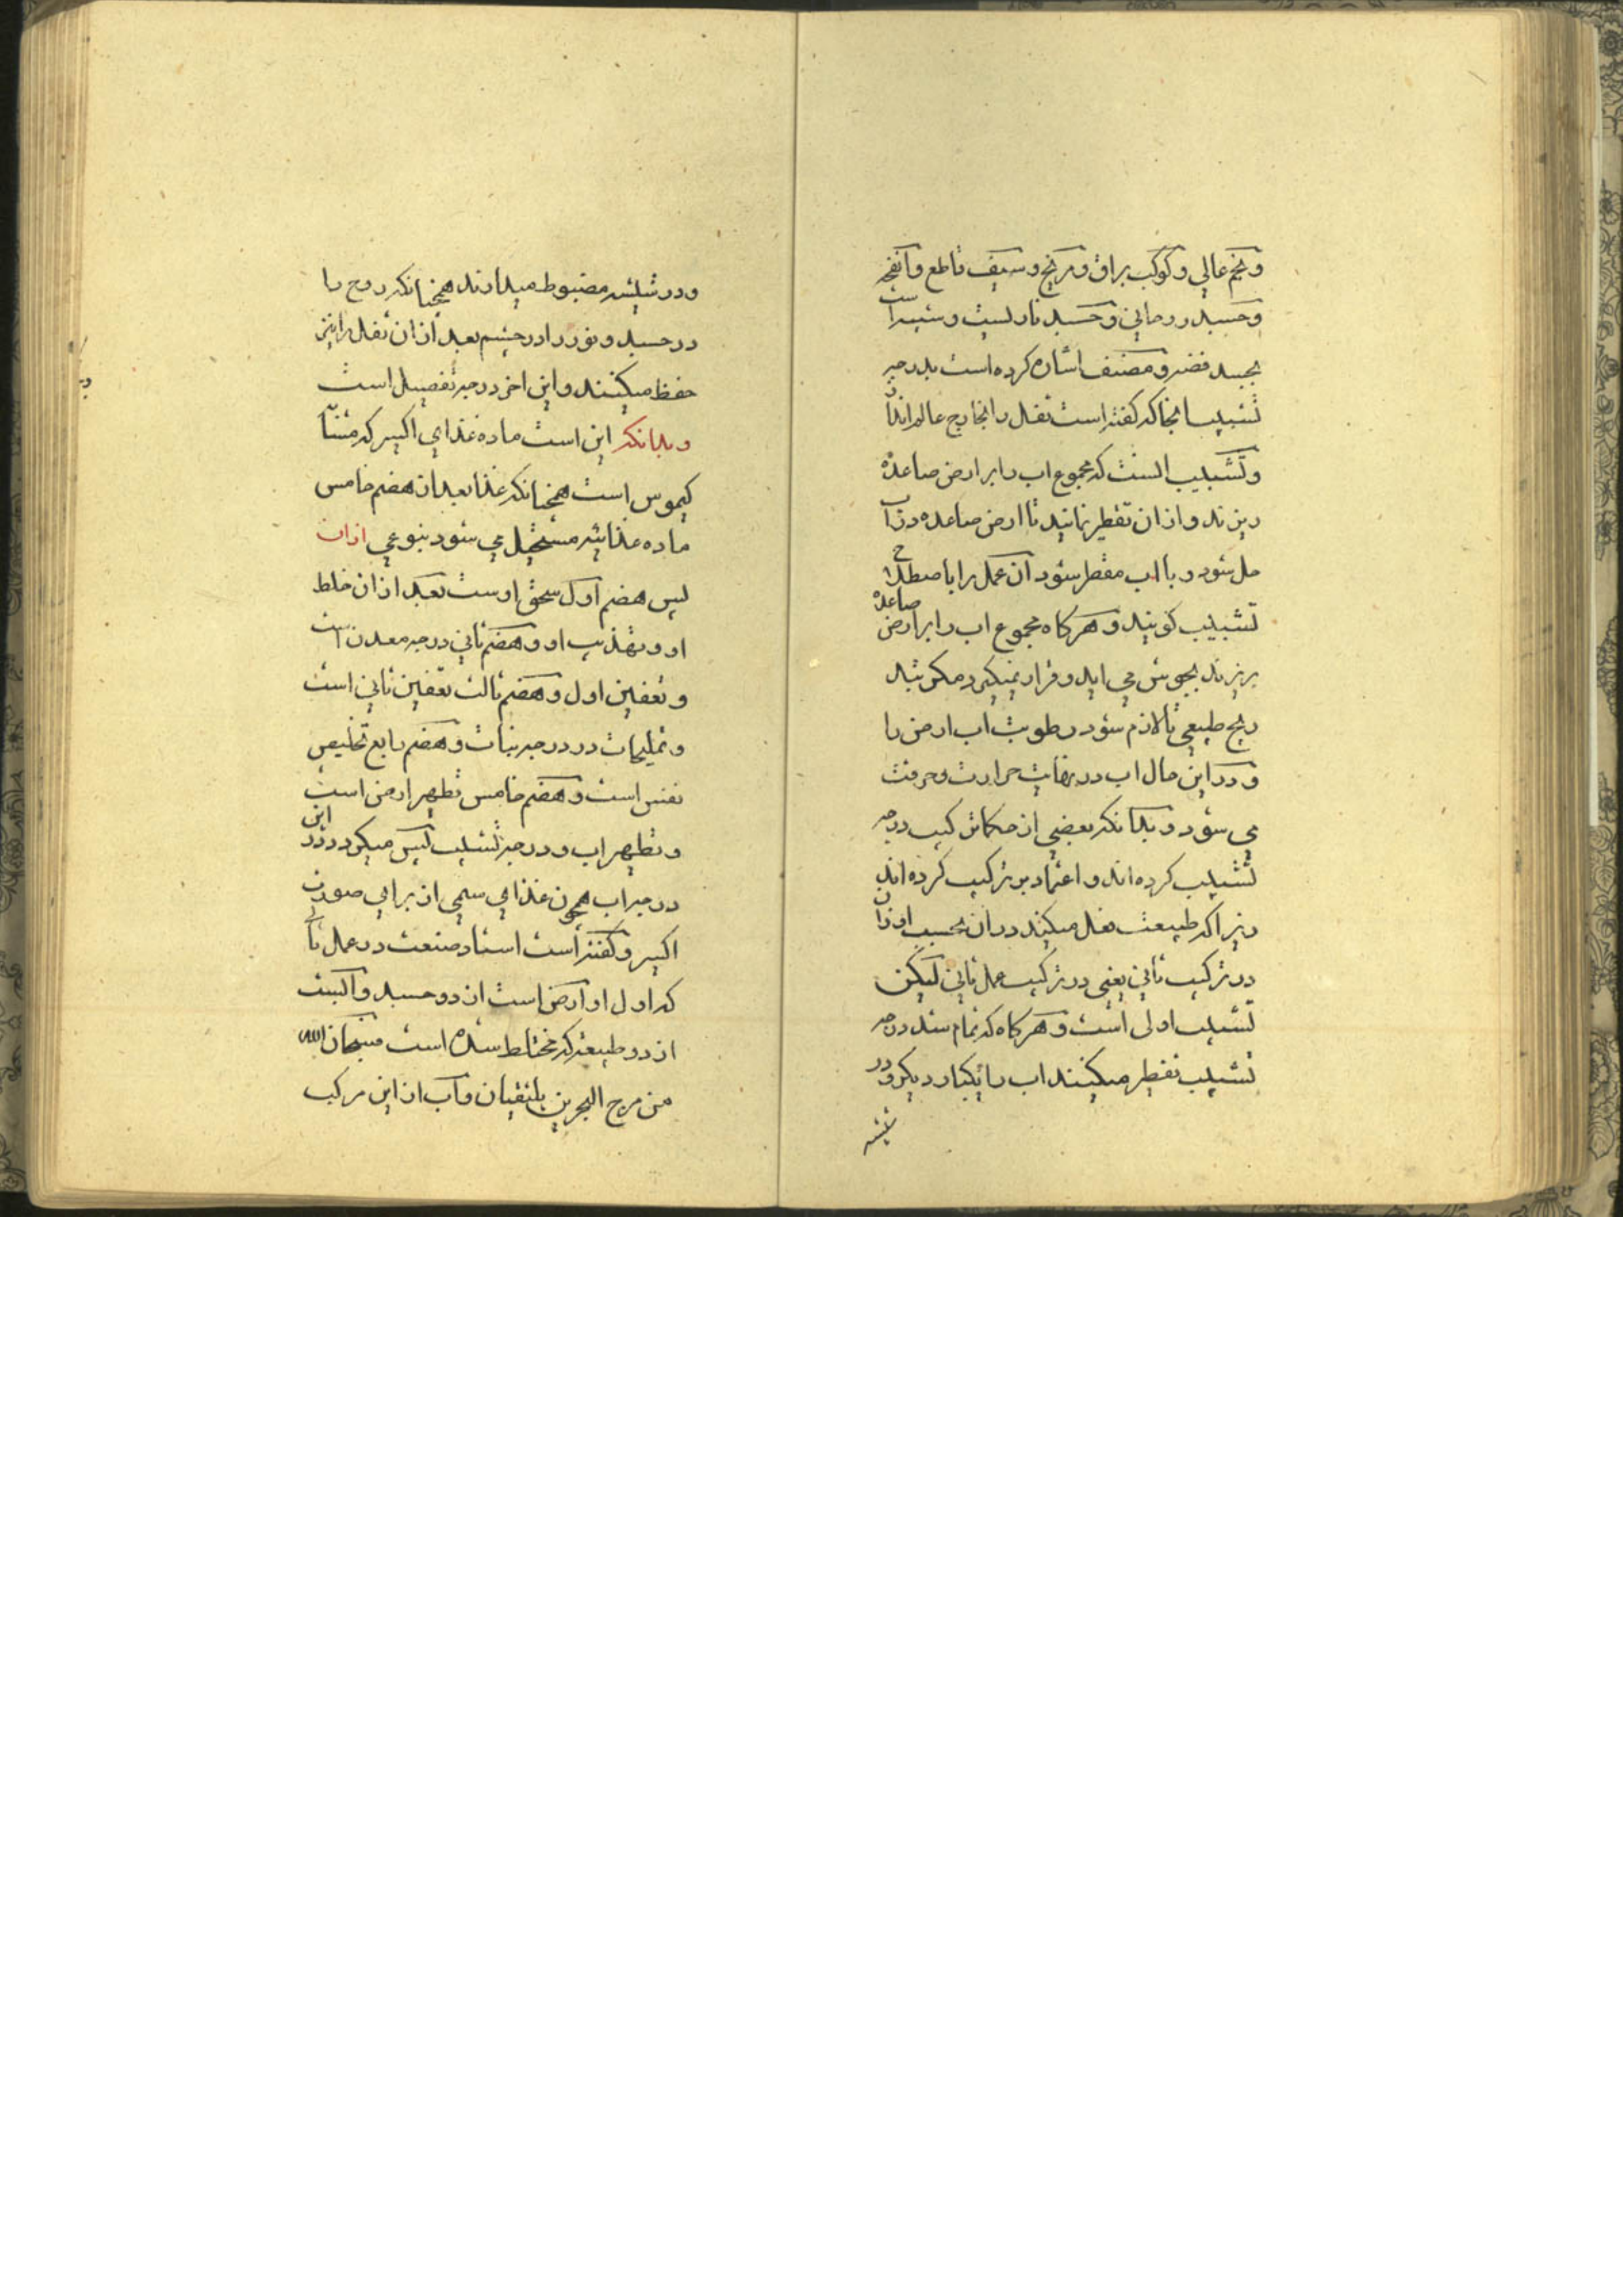 ونجم عالی وکوکب براق ومریخ وسیف قاطع وانفحه
وجسد روحانی وجسد نار لیت وشبیه است
بجسد فضه ومصنف اشاره کرده است بدرجه
تشبیب انجا که گفته است ثفل را بخارج عالم انداز
وتشبیب انست که مجموع اب را بر ارض صاعده
ریزند و از ان تقطیر نمایند تا ارض صاعده در آب
حل شود و با اب مقطر شود آن عمل را باصطلاح
تشبیب گویند و هرگاه مجموع اب را بر ارض صاعده
بریزند بجوش می اید و قرار نمیگیرد مگر بتد
ریج طبیعی تا لازم شود رطوبت اب ارض را
و در این حال اب در نهایت حرارت و حرقت
می شود و بدانکه بعضی از حکما ترکیب درجه
تشبیب کرده اند و اعتماد بر ترکیب کرده اند
زیرا که طبیعت فعل میکند در ان بحسب اوزان
در ترکیب ثانی یعنی در ترکیب عمل ثانی لیکن
تشبیب اولی است و هرگاه که تمام شد درجه
تشبیب تقطیر میکنند اب را یکبار دیگر و در
شیشه
و در شیشه مضبوط میدارند همچنانکه روح را
در جسد و نور را در چشم بعد از ان ثفل را نیز
حفظ میکنند و این اخر درجه تفصیل است
و بدانکه این است ماده غذای اکسیر که مشأ
کیموس است همچنانکه غذا بعد از هضم خامس
ماده غذائیه مستحیل می شود بنوعی از ان
پس هضم اول سحق اوست بعد از ان خلط
او و تهذیب او و هضم ثانی درجه معدن است
و تعفین اول و هضم ثالث تعفین ثانی است
و تملیحات در درجه نبات و هضم رابع تخلیص
نفس است و هضم خامس تطهیر ارض است
و تطهیر اب و درجه تشبیب پس میگردد در این
درجه اب همچون غذای سمی از برای صورت
اکسیر و گفته است استاد صنعت در عمل ثانی
که اول او ارض است از دو جسد و اب است
از دو طبیعه که مختلط شده است فسبحان الله
من مرج البحرین یلتقیان و آب از این مرکب